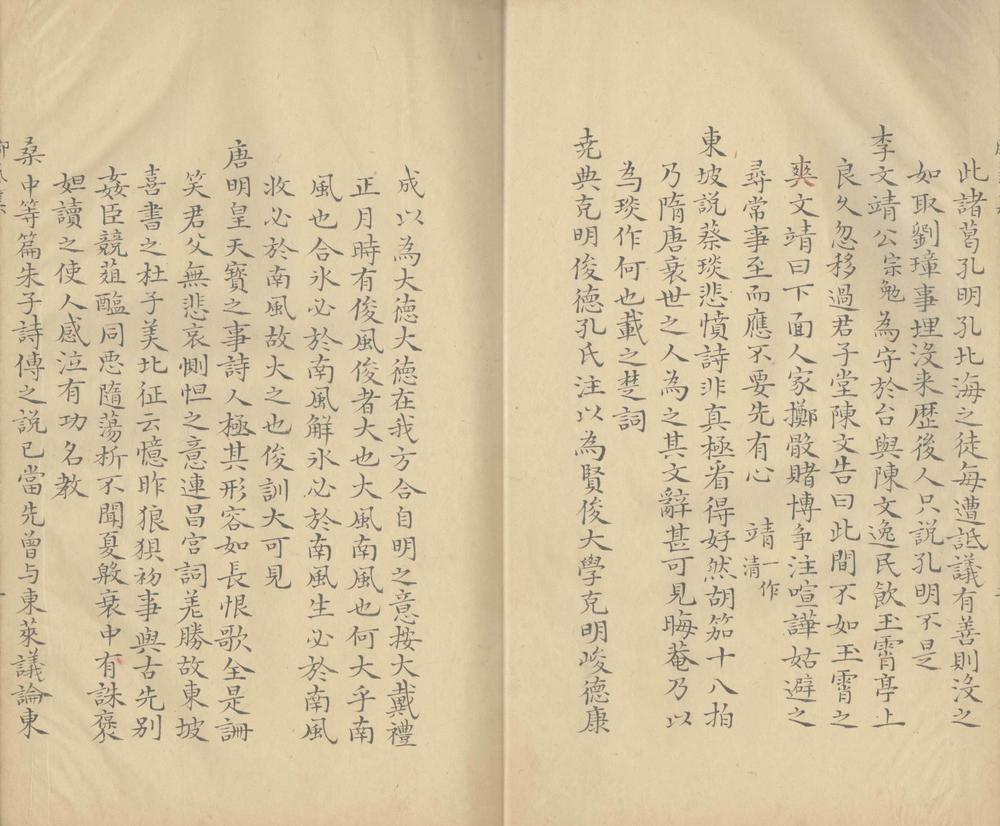 此諸葛孔明孔北海之徒每遭詆議有善則沒之
如取劉璋事埋沒来歷後人只說孔明不是
李文靖公宗勉為守於台與陳文逸民飲玉霄亭上
良久忽移過君子堂陳文告曰此間不如玉霄之
爽文靖曰下面人家擲骰賭博争注喧譁姑避之
尋常事至而應不要先有心 靖一作清
東坡說蔡琰悲憤詩非真極看得好然胡笳十八拍
乃隋唐衰世之人為之其文辭甚可見晦菴乃以
為琰作何也載之楚詞
尭典克明俊德孔氏注以為賢俊大學克明峻德康
成以為大德大德在我方合自明之意按大戴禮
正月時有俊風俊者大也大風南風也何大乎南
風也合氷必於南風解氷必於南風生必於南風
收必於南風故大之也俊訓大可見
唐明皇天寳之事詩人極其形容如長恨歌全是訕
笑君父無悲哀惻怛之意連昌宮詞差勝故東坡
喜書之杜子美北征云憶昨狼狽初事與古先别
姦臣競葅醢同惡隨蕩析不聞夏殷衰中有誅褒
妲讀之使人感泣有功名教
桑中等篇朱子詩傳之說已當先曾与東萊議論東